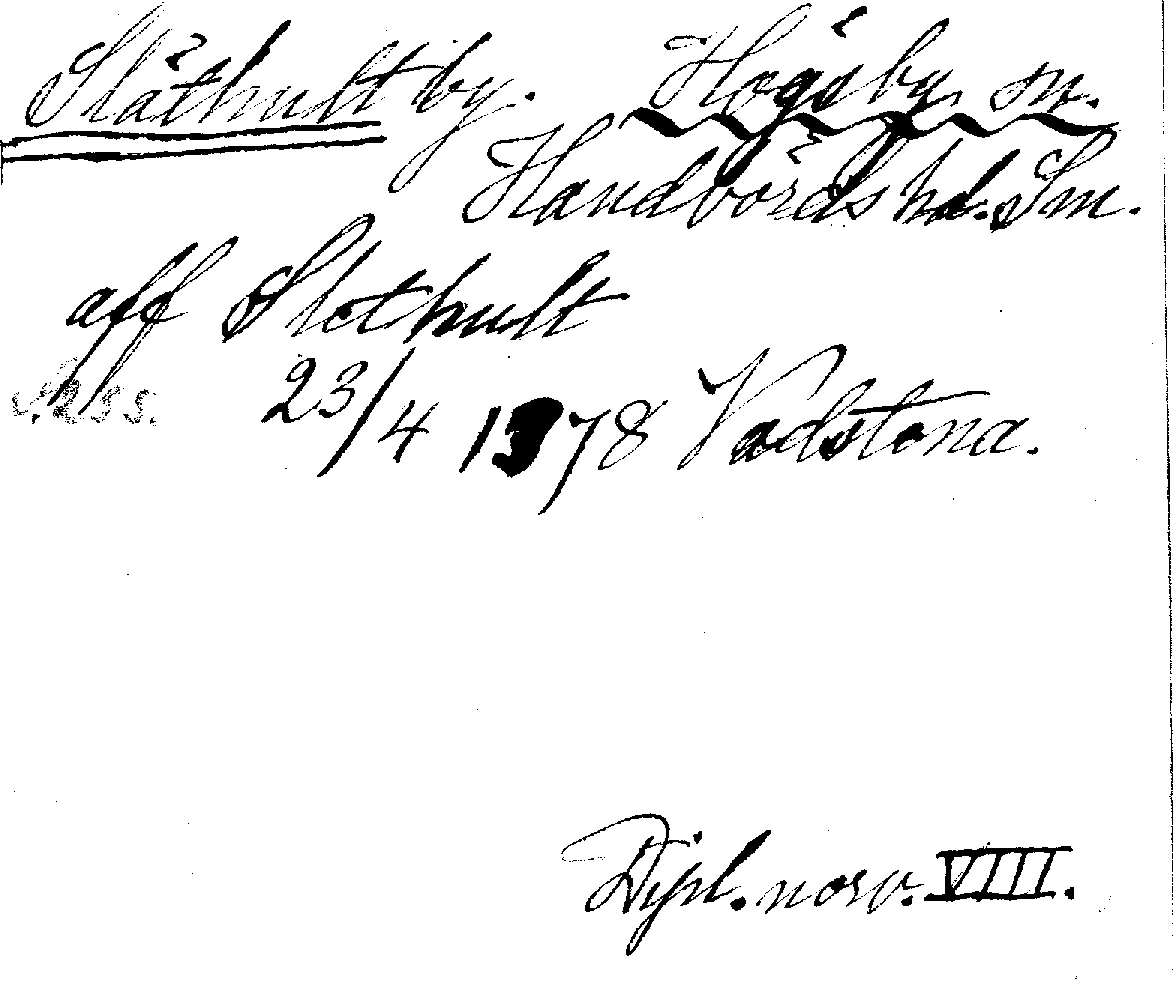 Släthult by. Högsby sn.
Handbörds hd. Sm.
aff Slethult
23/4 1378 Vadstena.
Dipl. norv. VIII.